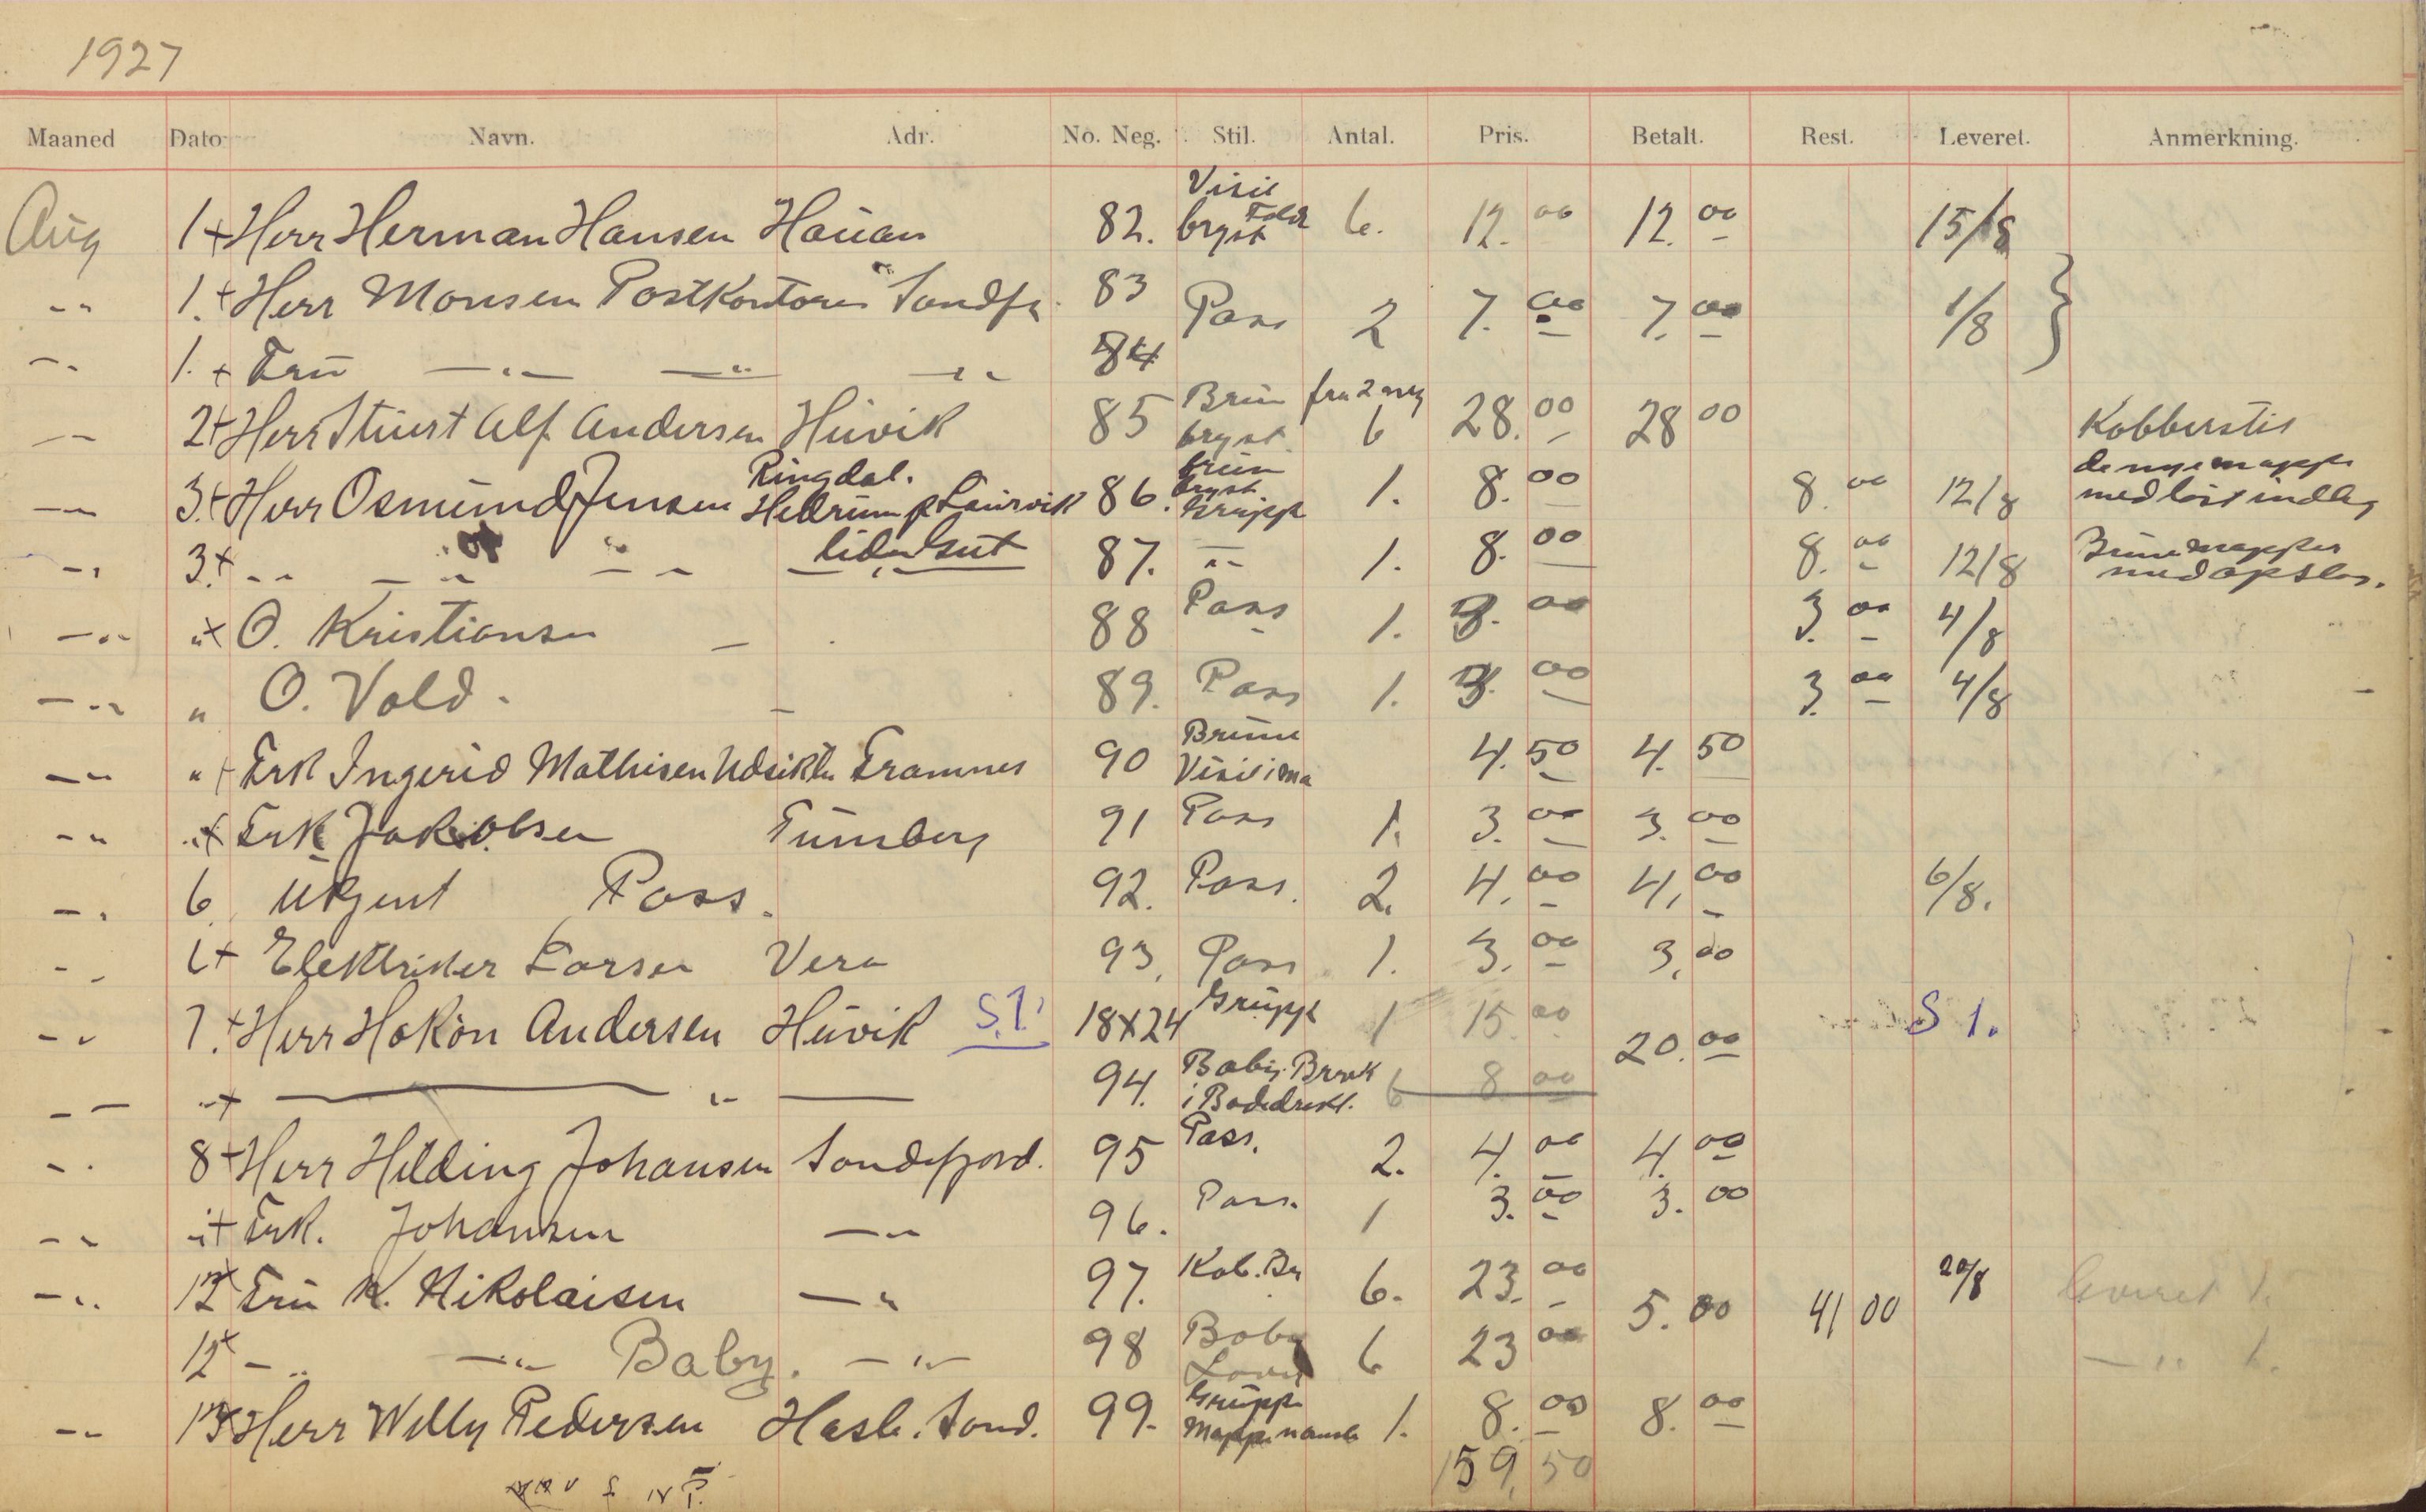 1927
Maaned Dato Navn. Adr. No. Neg. Stil. Antal. Pris. Betalt. Rest. Leveret. Anmerkning.
Aug 1 + Herr Herman Hansen Hauan 82. Visit bryst 6. 12.00 12.00 15/8
-"- 1. + Herr Monsen Postkontoret Sandfj. 83 Pass 2 7.00 7.00 1/8 }
-"- 1. + Fru -"- -"- -"- 84
-"- 2 + Herr Stuert Alf Andersen Huvik 85 Brun bryst fra 2 neg 6 28.00 28 00 Kobberstik
-"- 3. + Herr Osmund Jensen Ringdal. Hedrum p Laurvik 86. brun bryst. Gruppe 1. 8.00 8.00 12/8 de nye mapper med løst indlæg
-"- 3. + -"- -"- -"- 87. -"- 1. 8.00 8.00 12/8 Brune mapper med opslag.
-"- " + O. Kristiansen - 88 Pass 1. 3.00 3.00 4/8
-"- " O. Vold. - 89. Pass 1. 3.00 3.00 4/8
-"- " + Frk Ingerid Mathisen Udsikten Framnes 90 Brune Visit i ma 4.50 4.50
-"- " + Frk Jakobsen Tunsberg 91 Pass 1. 3.00 3.00
-"- 6 Ukjent Pass. 92. Pass. 2. 4.00 4.00 6/8.
-"- 6 + Elektriker Larsen Vera 93. Pass 1. 3.00 3.00
-"- 7. + Herr Hakon Andersen Huvik S.1. 18x24 Gruppe 1 15.00 20.00 S 1.
-"- " + -"- 94. Baby. Brvk i Badedrakt. 6 8 00
-"- 8 + Herr Hilding Johansen Sandefjord. 95 Pass. 2. 4.00 4.00
-"- " + Frk. Johansen -"- 96. Pass. 1 3.00 3.00
-"- 12 + Fru K. Nikolaisen -"- 97. Kob. Br 6. 23.00 5.00 41 00 20/8 Leveret 1.
12 + -"- -"- Baby. -"- 98 Baby 6 23 00 -"- 6.
-"- 13 + Herr Willy Pedersen Hasle. Sand. 99. Gruppe Mappe 1. 8.00 8.00
159,50